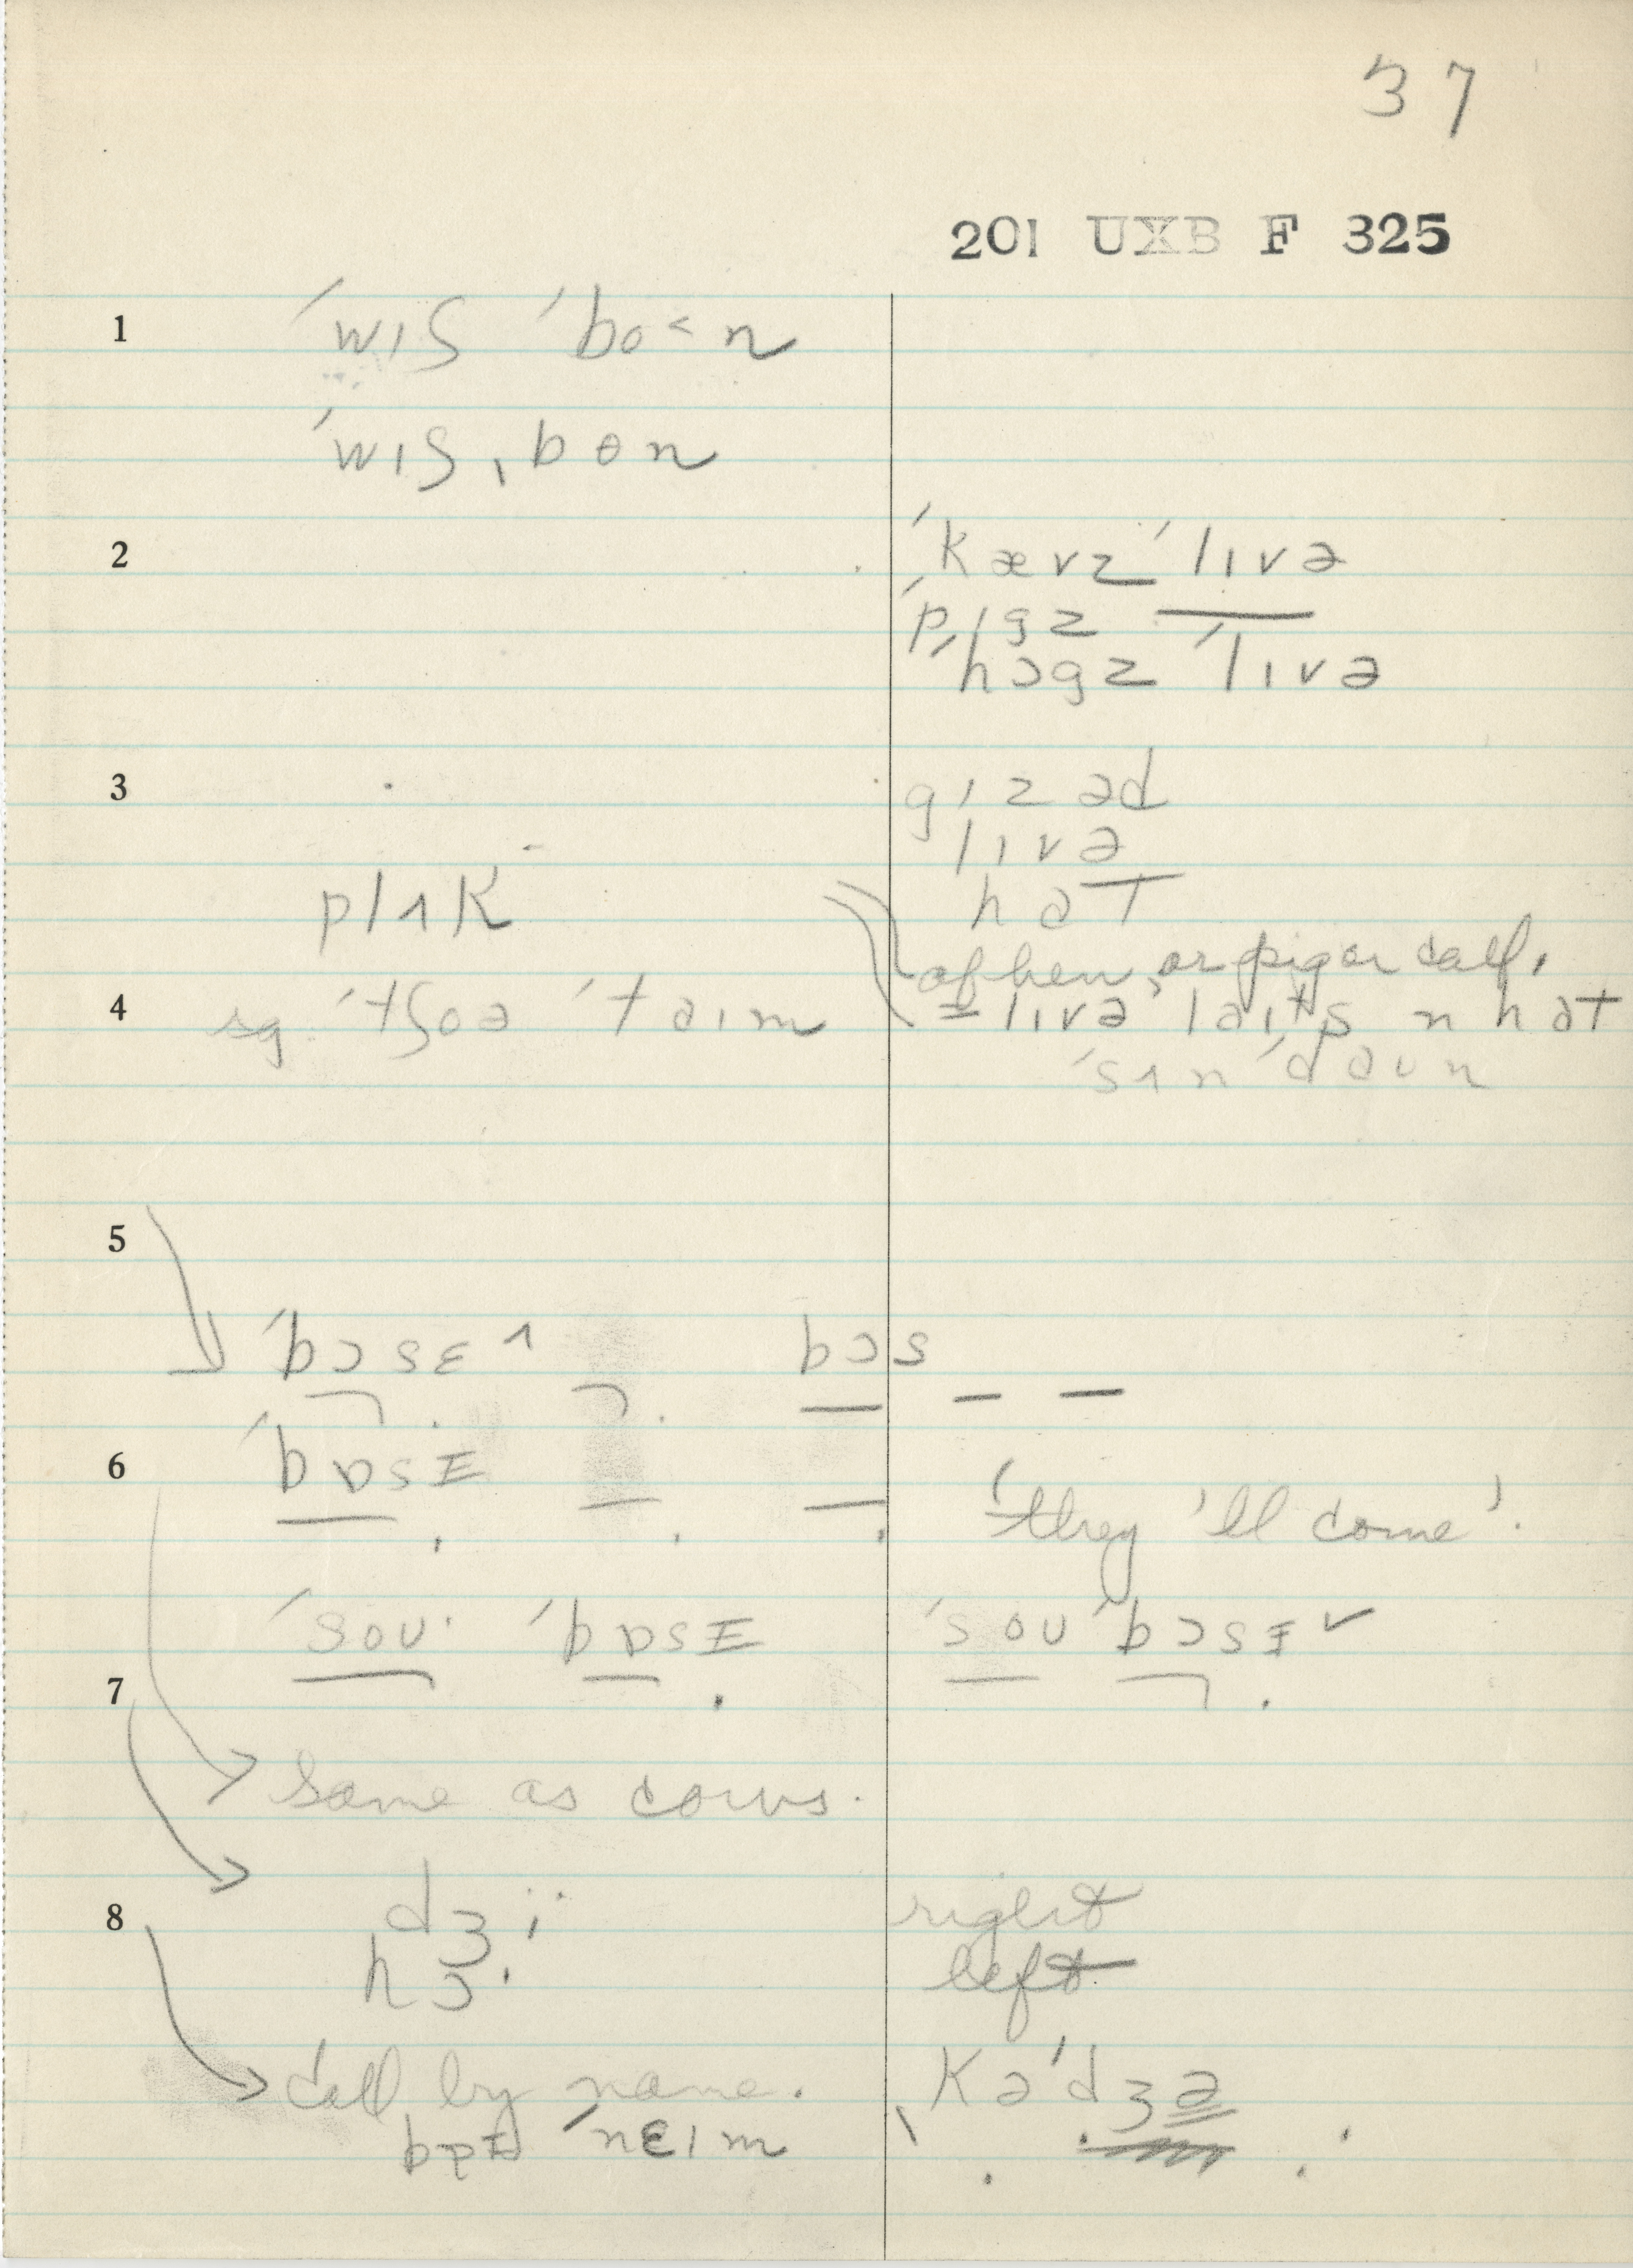 37
201 UXB F 325
1 ˈwɪʃ ˈbo˂n
ˈwɪʃˌbɵn
2 ˈkævz ˈlɪvə
ˈpɪgz
ˈhɔgz ˈlɪvə
3 gɪzəd
lɪvə
plʌk hat
of hen, or pig or calf.
4 sg. ˈtʃoə ˈtaɪm = lɪvə laɪts n hat
ˈsʌnˈdaun
5
ˈbɔsɛ^ bɔs
6 ˈbɒsɪ
'they'll come'.
ˈsoʊ· ˈbɒsɪ ˈsoʊˈbɔsɪ˅
7
same as cows.
8 dʒi right
hɔ· left
call by name. kəˈdʒə
baɪ ˈnɛɪm